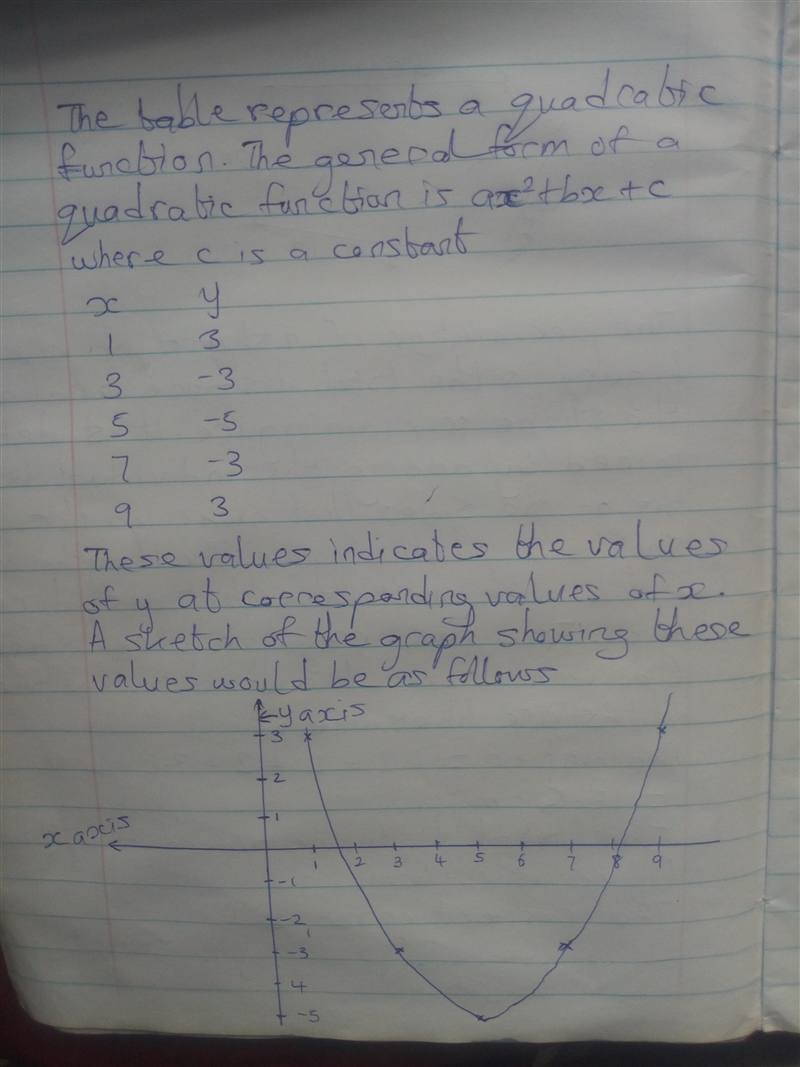 The table represents a quadratic
function. The general form of a
quadratic function is ax²+bx+c
where c is a constant
x y
1 3
3 -3
5 -5
7 -3
9 3
These values indicates the values
of y at corresponding values of x.
A sketch of the graph showing these
values would be as follows
y axis
3
2
1
x axis
1 2 3 4 5 6 7 8 9
-1
-2
-3
4
-5